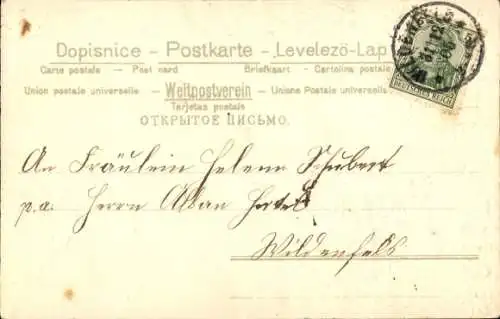 Dopisnice – Postkarte – Levelező-Lap
Carte postale – Post card Briefkaart – Cartolina postale
Union postale universelle – Weltpostverein – Unione Postale universale
Tarjetas postale
ОТКРЫТОЕ ПИСЬМО.
DEUTSCHES REICH
An Fräulein Helene Schubert
p.a. Herrn Alban
Wildenfels